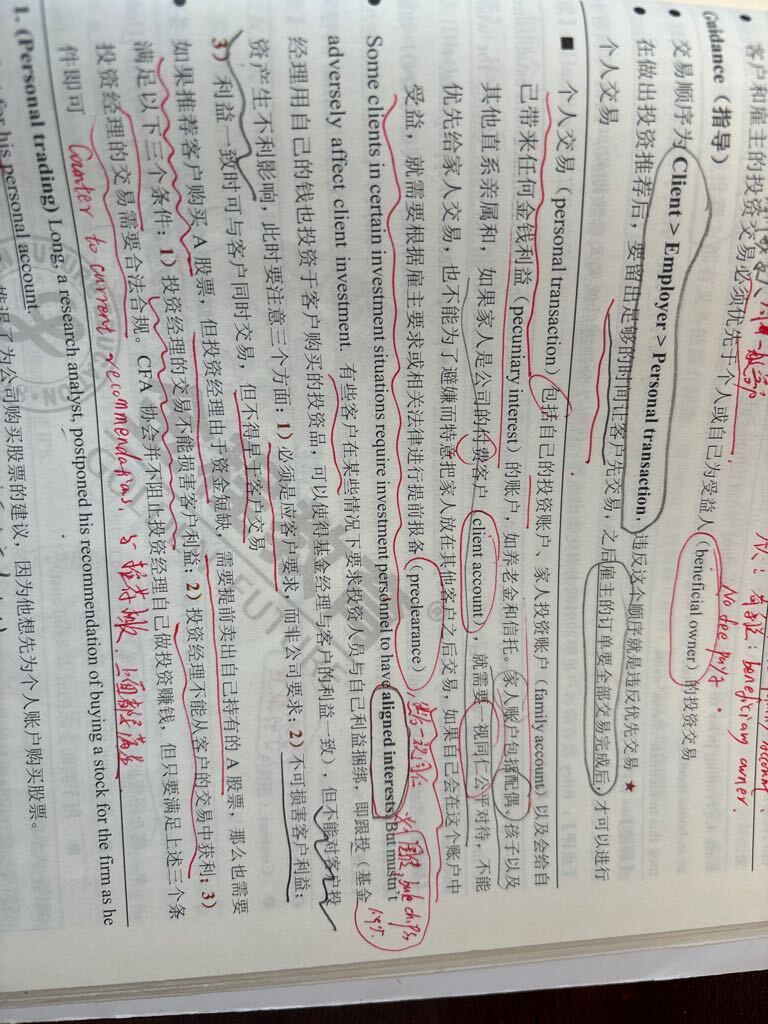 客户和雇主的投资交易必须优先于个人或自己为受益人（beneficial owner）的投资交易
Guidance（指导）
交易顺序为 Client > Employer > Personal transaction，违反这个顺序就是违反优先交易 ★
在做出投资推荐后，要留出足够的时间让客户先交易，之后雇主的订单要全部交易完成后，才可以进行
个人交易
■ 个人交易（personal transaction）包括自己的投资账户、家人投资账户（family account）以及会给自
己带来任何金钱利益（pecuniary interest）的账户，如养老金和信托。家人账户包括配偶、孩子以及
其他直系亲属和，如果家人是公司的付费客户（client account），就需要一视同仁公平对待，不能
优先给家人交易，也不能为了避嫌而特意把家人放在其他客户之后交易；如果自己会在这个账户中
受益，就需要根据雇主要求或相关法律进行提前报备（preclearance）
Some clients in certain investment situations require investment personnel to have aligned interests. But mustn't
adversely affect client investment. 有些客户在某些情况下要求投资人员与自己利益捆绑，即跟投（基金
经理用自己的钱也投资于客户购买的投资品，可以使得基金经理与客户的利益一致），但不能对客户投
资产生不利影响，此时要注意三个方面：1）必须是应客户要求，而非公司要求；2）不可损害客户利益；
3）利益一致时可与客户同时交易，但不得早于客户交易
如果推荐客户购买 A 股票，但投资经理由于资金短缺，需要提前卖出自己持有的 A 股票，那么也需要
满足以下三个条件：1）投资经理的交易不能损害客户利益；2）投资经理不能从客户的交易中获利；3）
投资经理的交易需要合法合规。CFA 协会并不阻止投资经理自己做投资赚钱，但只要满足上述三个条
件即可
Counter to current recommendations
1. (Personal trading) Long, a research analyst, postponed his recommendation of buying a stock for the firm as he
for his personal account.
推迟了为公司购买股票的建议，因为他想先为个人账户购买股票。
beneficiary owner.